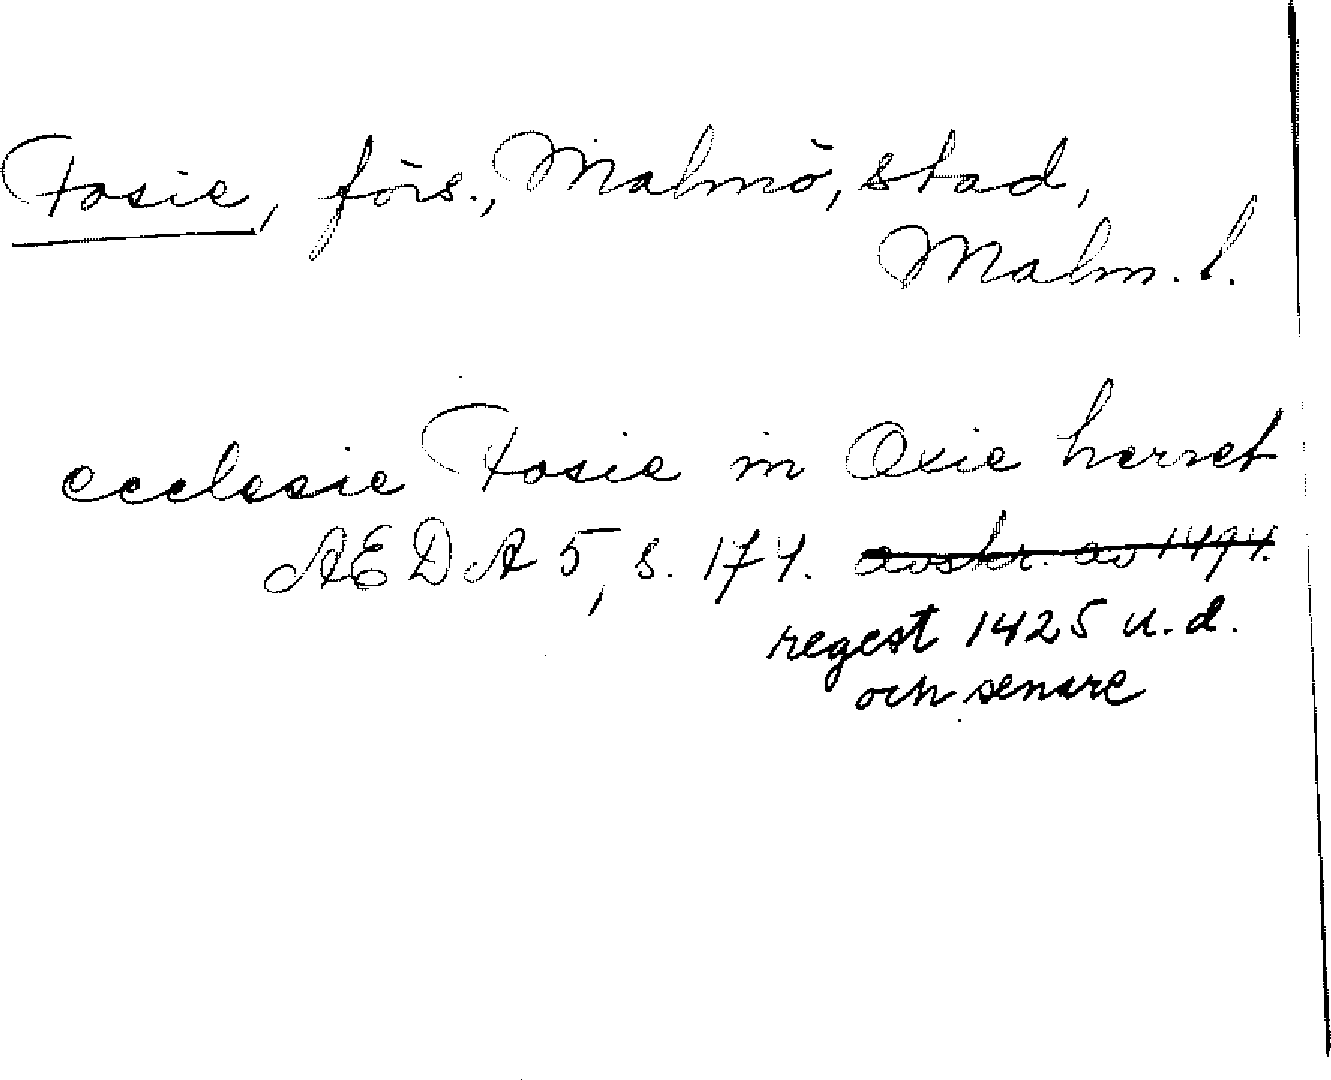 Fosie, förs., Malmö, stad,
Malm. l.
ecclesie Fosie in Oxie herret
AEDA 5, s. 174. avskr. av 1494.
regest 1425 u.d.
och senare